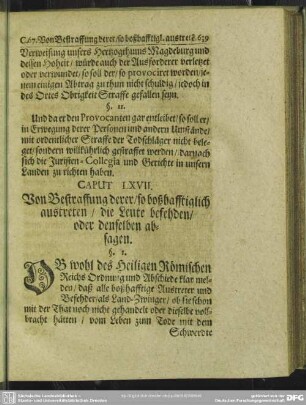 C.67. Von Bestraffung derer/ so boßhafftigl. austret/ꝛc. 639
Verweisung unsers Hertzogthums Magdeburg und
dessen Hoheit/ würde auch der Ausforderer verletzet
oder verwundet/ so soll der/ so provociret worden/ je-
nem einigen Abtrag zu thun nicht schuldig/ jedoch in
des Ortes Obrigkeit Straffe gefallen seyn.
§. 11.
Und da er den Provocanten gar entleibet/ so soll er/
in Erwegung derer Personen und andern Umstände/
mit ordentlicher Straffe der Todschläger nicht bele-
get/ sondern willkührlich gestraffet werden/ darnach
sich die Juristen-Collegia und Gerichte in unsern
Landen zu richten haben.
CAPUT LXVII.
Von Bestraffung derer/ so boßhafftiglich
austreten/ die Leute befehden/
oder denselben ab-
sagen.
§. 1.
OB wohl des Heiligen Römischen
Reichs Ordnung und Abschiede klar mel-
den/ daß alle boßhafftige Austreter und
Befehder/ als Land-Zwinger/ ob sie schon
mit der That noch nicht gehandelt oder dieselbe voll-
bracht hätten/ vom Leben zum Tode mit dem
Schwerdte